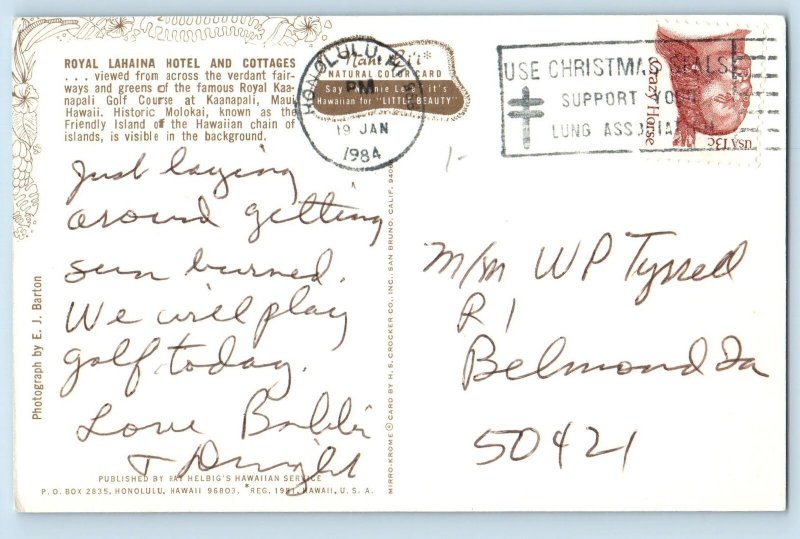 ROYAL LAHAINA HOTEL AND COTTAGES
. . . viewed from across the verdant fair-
ways and greens of the famous Royal Kaa-
napali Golf Course at Kaanapali, Maui
Hawaii. Historic Molokai, known as the
Friendly Island of the Hawaiian chain of
islands, is visible in the background.
NATURAL COLOR CARD
Hawaiian for "LITTLE BEAUTY"
HONOLULU, HI
PM
19 JAN
1984
USE CHRISTMAS SEALS
SUPPORT YOUR
LUNG ASSOCIATION
Crazy Horse
USA 13c
Just laying
around getting
sun burned.
We will play
golf today.
Love Bobbi
+ Dwight
M/M W P Tyrrell
R 1
Belmond Ia
50421
Photograph by E. J. Barton
MIRRO-KROME ® CARD BY H. S. CROCKER CO., INC., SAN BRUNO, CALIF.
PUBLISHED BY RAY HELBIG'S HAWAIIAN SERVICE
P. O. BOX 2835, HONOLULU, HAWAII 96803. *REG. 1951, HAWAII, U. S. A.